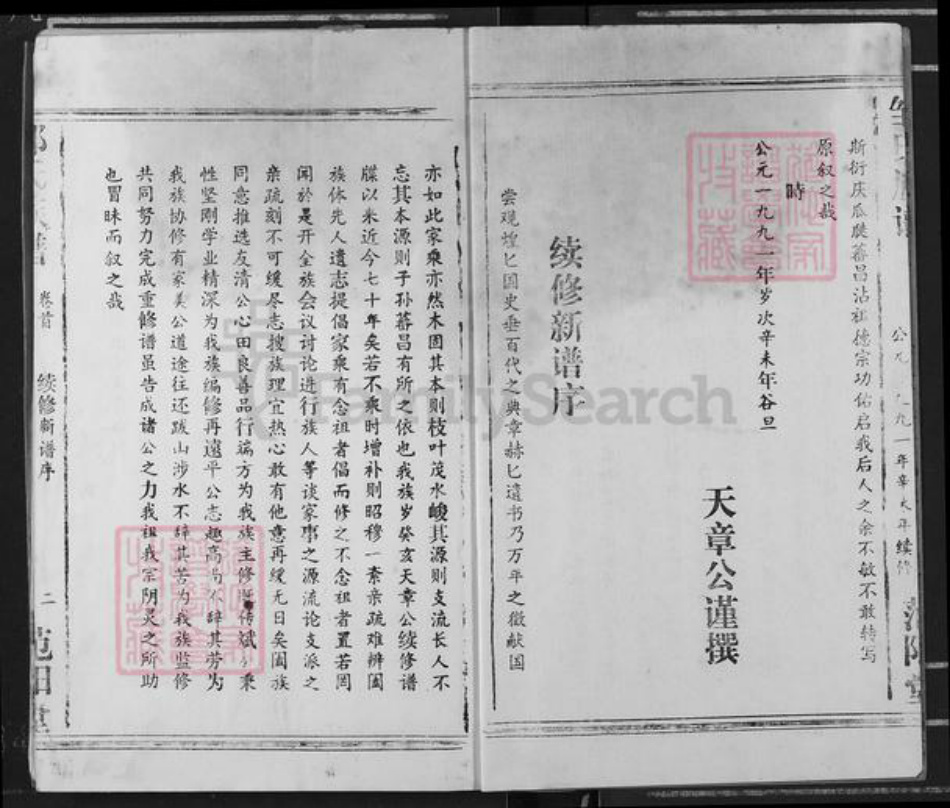 斯衍庆瓜瓞蕃昌沾祖德宗功佑启我后人之余不敏不敢转写
原叙之哉
時
公元一九九一年岁次辛未年谷旦
天章公谨撰
续修新谱序
尝观煌匕国史垂百代之典章赫匕遗书乃万年之徵献国
亦如此家乘亦然木固其本则枝叶茂水峻其源则支流长人不
忘其本源则子孙蕃昌有所之依也我族岁癸亥天章公续修谱
牒以来近今七十年矣若不乘时增补则昭穆一紊亲疏难辨阖
族体先人遗志提倡家乘有念祖者倡而修之不念祖者置若罔
闻於是开全族会议讨论进行族人等谈家事之源流论支派之
亲疏刻不可缓尽志搜族理宜热心敢有他意再缓无日矣阖族
同意推选友清公心田良善品行端方为我族主修 传斌 秉
性坚刚学业精深为我族编修再遠平公志趣高尚不辞其劳为
我族协修有家美公道途往还跋山涉水不辞其苦为我族监修
共同努力完成重修谱虽告成诸公之力我祖我宗阴灵之所助
也冒昧而叙之哉
卷首
续修新谱序
二
FamilySearch